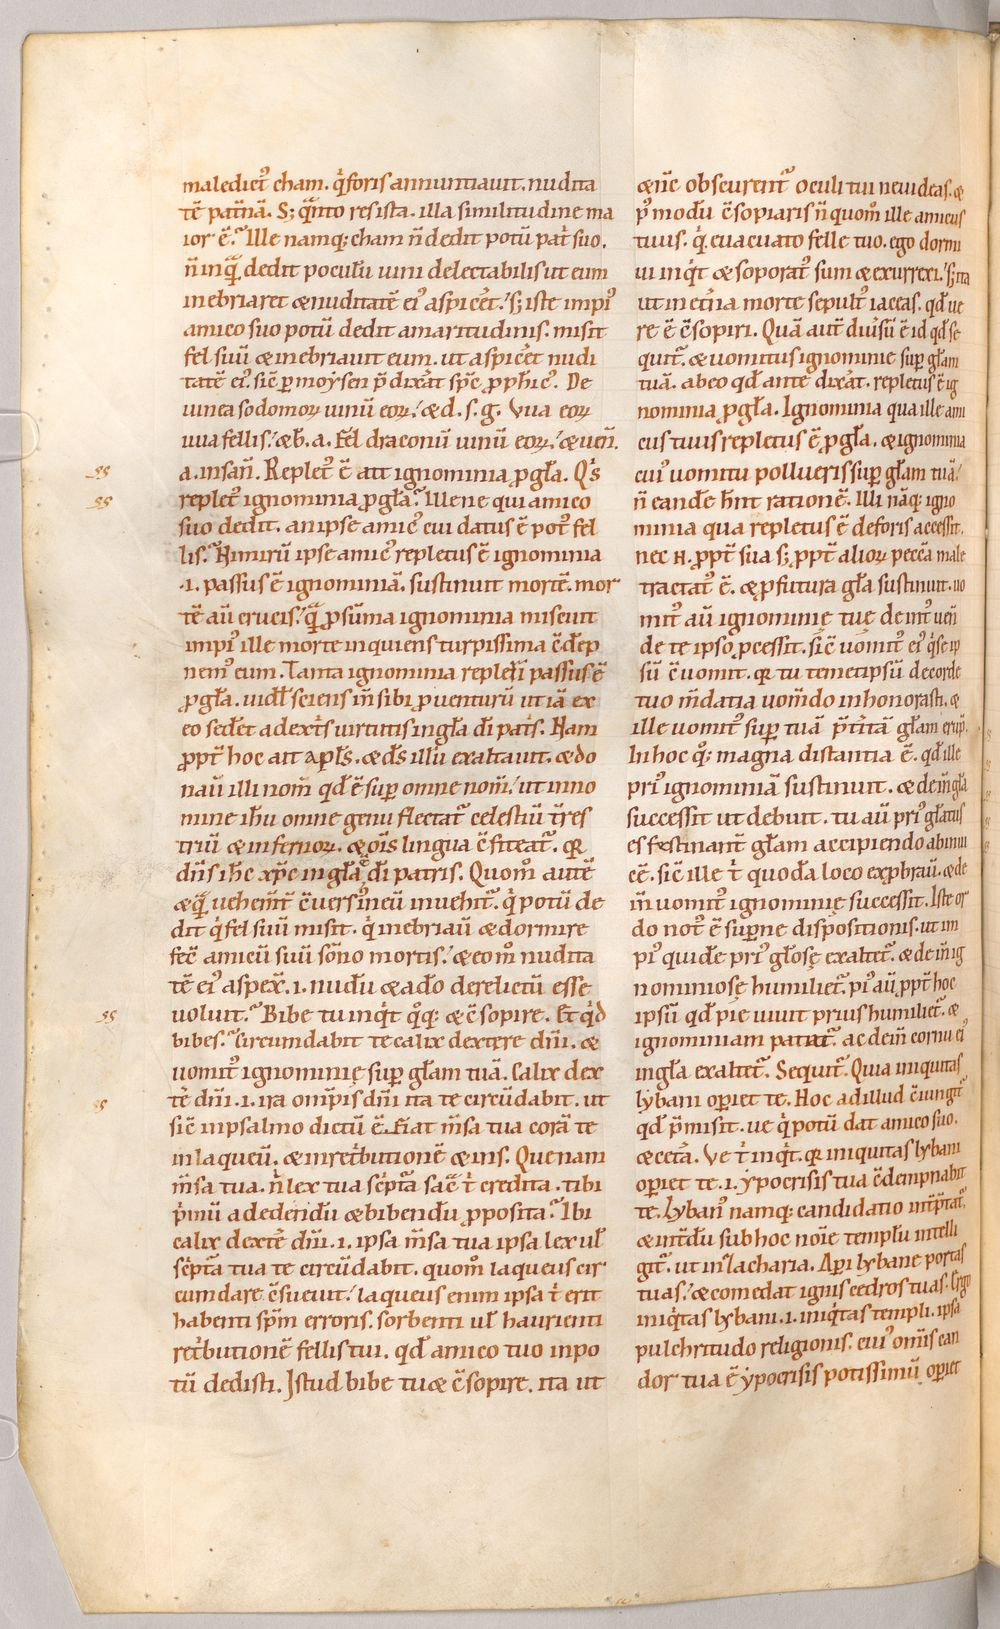 maledict᾿ cham. q̇ foris annuntiauit. nudita
tē pat̄nā. S; q̄nto res ista. illa similitudine ma
ior ē.᾿ Ille namq; cham n̄ dedit potū pat̄ suo.
n̄ inquā dedit poculū uini delectabilis ut eum
inebriaret & nuditatē ei᾿ aspic̄et. s; iste impi᾿
amico suo potū dedit amaritudinis. misit
fel suū & inebriauit eum. ut aspic̄et nudi
tatē ei᾿. sic̄ per moẏsen p̄dixāt spc̄ ꝓph̄ic᾿. De
uinea sodomoꝝ uinū eoꝝ. & d. s. g. Vua eoꝝ
uua fellis. & b. a. Fel draconū uinū eoꝝ. & uen̄.
ss
a. insan̄. Replet᾿ ē ait ignominia ꝓ gl̄a. Q̇s
ss
replet᾿ ignominia ꝓ gl̄a. Illene qui amico
suo dedit. an ipse amic᾿ cui datus ē pot᾿ fel
lis. Nimirū ipse amic᾿ repletus ē ignominia
.i. passus ē ignominiā. sustinuit mortē. mor
tē aū crucis. quā ꝓ sūma ignominia miscuit
impi᾿ ille morte inquiens turpissima c̄dēp
nem᾿ eum. Tanta ignominia repleri passus ē
ꝓ gl̄a. uidl̄ sciens m̄ sibi ꝓuenturū ut iā ex
eo sedēt a dext̄s uirtutis in gl̄a dī pat̄s. Nam
ꝓpt̄ hoc ait apl̄s. & ds̄ illū exaltauit. & do
nauit illi nom̄ qd̄ ē sup̄ omne nom̄. ut in no
mine ih̄u omne genu flectat᾿ celestiū t̄res
triū & infernoꝝ. & oīs lingua c̄fiteat᾿. qꝛ
dn̄s ih̄c xp̄c in gl̄a ē dī patris. Quom̊ autē
& quā uehem̄t c̄uers᾿ in eū inuehit᾿. q̇ potū de
dit q̇ fel suū misit. q̇ inebriauit & dormire
fec̄ amicū suū som̄no mortis. & eom̊ nudita
tē ei᾿ aspex̄. .i. nudū & a dō derelictū esse
ss
uoluit.᾿ Bibe tu inq̇t q̊q; & c̄sopire. Et q̇d
bibes.᾿ Circumdabit te calix dextere dn̄i. &
uomit᾿ ignominię sup̄ gl̄am tuā. Calix dex
ss
tē dn̄i .i. ira omp̄is dn̄i ita te circūdabit. ut
sic̄ in psalmo dictū ē. Fiat m̄sa tua corā te
in laqueū. & in ret̄butionē & in s. Que nam
m̄sa tua. n̄ lex tua sc̄pta sac̄ t̄ credita. tibi
p̄mū ad edendū & bibendū ꝓposita.᾿ Ibi
calix dextē dn̄i .i. ipsa m̄sa tua ipsa lex ul̄
sc̄pta tua te circūdabit. quom̊ laqueus cir
cumdare c̄sueuit. laqueus enim ipsa t̄ erit
habenti sp̄m erroris. sorbenti ul̄ haurienti
ret̄butionē fellis tui. qd̄ amico tuo in po
tū dedisti. Istud bibe tu & c̄sopire. ita ut
& nc̄ obscurent᾿ oculi tui ne uideas. &
p᾿ modū c̄sopiaris n̄ quom̊ ille amicus
tuus. q̇ euacuato felle tuo. ego dormi
ui inq̇t & soporat᾿ sum & exurrexi. s; ita
ut in et̄na morte sepult᾿ iaceas. qd̄ ue
re ē c̄sopiri. Quā aut̄ duīsū ē id qd̄ se
quit᾿. & uomitus ignominię sup̄ gl̄am
tuā. ab eo qd̄ ante dixāt. repletus ē ig
nominia ꝓ gl̄a. Ignominia qua ille ami
cus tuus repletus ē ꝓ gl̄a. & ignominia
cui᾿ uomitu pollueris sup̄ gl̄am tuā.
n̄ eandē hn̄t rationē. Illi nāq; igno
minia qua repletus ē deforis accessit.
nec n̄. ꝓpt̄ sua s; ꝓpt̄ alioꝝ pecc̄a male
tractat᾿ ē. & ꝓ futura gl̄a sustinuit. uo
mit᾿ aū ignominię tuę de int᾿ ueni
de te ipso ꝓcessit. sic̄ ē uomit᾿ ei᾿ q̇ se ip
sū ē uomit. qꝛ tu temetipsū de corde
tuo m̄datia uom̄do inhonorasti. &
ille uomit᾿ sup̄ tuā p̄t̄itā gl̄am erup̄.
In hoc q̊; magna distantia ē. qd̄ ille
pri᾿ ignominiā sustinuit. & dein̄ gl̄a
successit ut debuit. tu aū pri᾿ gl̄atus
es festinant̄ gl̄am accipiendo ab inui
cē. sic̄ ille t̄ quodā loco exꝓbrauit. & de
in̄ uomit᾿ ignominię successit. Iste or
do not᾿ ē sup̄ne dispositionis. ut im
pi᾿ quidē pri᾿ gl̄osę exaltet᾿. & dein̄ ig
nominiose humiliet᾿. pi᾿ aū ꝓpt̄ hoc
ipsū qd̄ pię uiuit prius humiliet᾿. &
ignominiam patiat᾿. ac dein̄ cornu ei᾿
in gl̄a exaltet᾿. Sequit᾿. Quia iniquitas
lẏbani opiet te. Hoc ad illud c̄iungit᾿
qd̄ p̄misit. ue q̇ potū dat amico suo.
& cet̄a. Ve t̄ inq̇t. qꝛ iniquitas lẏbani
opiet te .i. ẏpocrisis tua c̄dempnabit
te. Lẏban᾿ namq; candidatio int̄p̄tat᾿.
& int̄dū sub hoc noīe templū intelli
git᾿. ut in zacharia. Apī lẏbane portas
tuas. & comedat ignis cedros tuas. Ergo
iniq̇tas lẏbani .i. iniq̇tas templi. ipsa
pulchritudo religionis. cui᾿ om̄is can
dor tua ē ẏpocrisis potissimū opiet